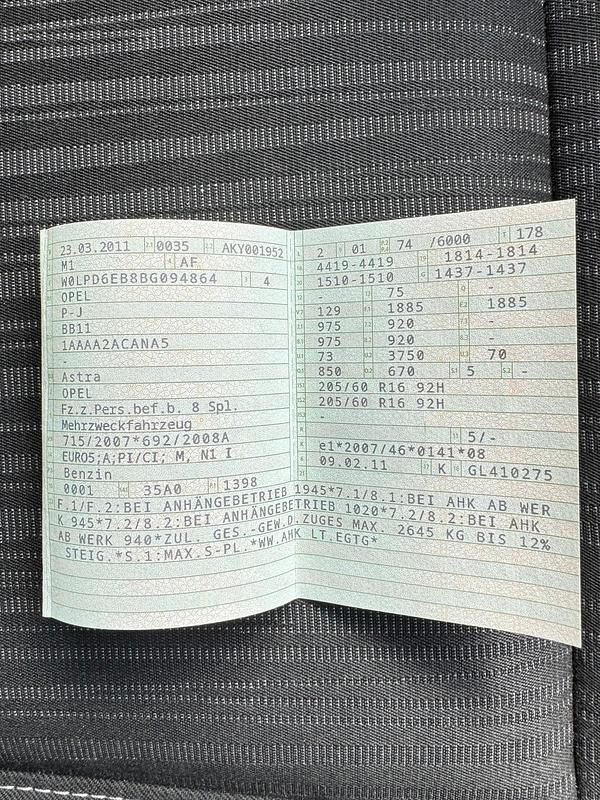 23.03.2011 0035 AKY001952
M1 AF
W0LPD6EB8BG094864 4
OPEL
P-J
BB11
1AAAA2ACANA5
-
Astra
OPEL
Fz.z.Pers.bef.b. 8 Spl.
Mehrzweckfahrzeug
715/2007*692/2008A
EURO5;A;PI/CI; M, N1 I
Benzin
0001 35A0 1398
2 01 74 /6000 178
4419-4419 1814-1814
1510-1510 1437-1437
- 75 -
129 1885 1885
975 920 -
975 920 -
73 3750 70
850 670 5 -
205/60 R16 92H
205/60 R16 92H
-
5/-
e1*2007/46*0141*08
09.02.11 K GL410275
F.1/F.2:BEI ANHÄNGEBETRIEB 1945*7.1/8.1:BEI AHK AB WER
K 945*7.2/8.2:BEI ANHÄNGEBETRIEB 1020*7.2/8.2:BEI AHK
AB WERK 940*ZUL. GES.-GEW.D.ZUGES MAX. 2645 KG BIS 12%
STEIG.*S.1:MAX.S-PL.*WW.AHK LT.EGTG*